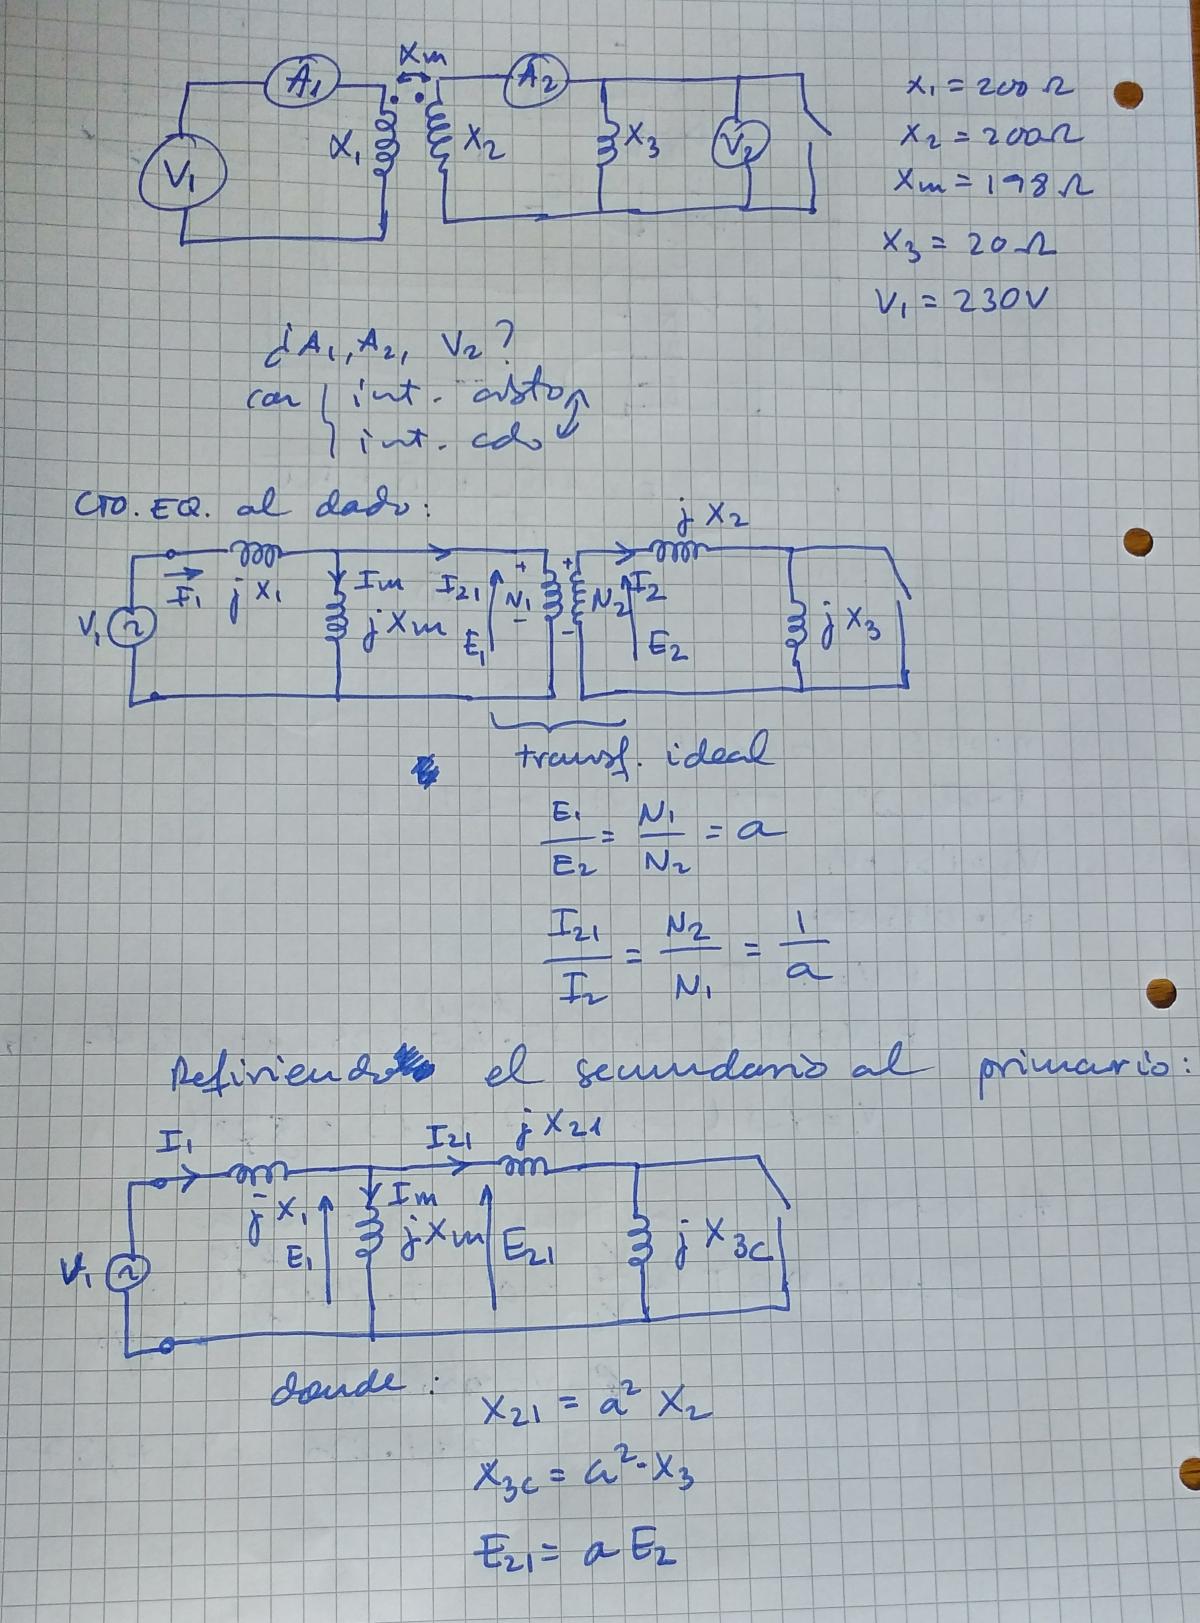 Xm
A1
A2
X1 = 200 Ω
V1
X1
X2
X3
V2
X2 = 200Ω
Xm = 198 Ω
X3 = 20 Ω
V1 = 230V
¿A1, A2, V2?
con { int. abto
int. cdo
CTO. EQ. al dado:
jX2
I1
jX1
Im
I21
I2
V1
jXm
E1
N1
N2
E2
jX3
+
+
-
-
transf. ideal
E1/E2 = N1/N2 = a
I21/I2 = N2/N1 = 1/a
Refiriendo el secundario al primario:
I1
I21
jX21
jX1
Im
V1
E1
jXm
E21
jX3c
donde:
X21 = a² X2
X3c = a²·X3
E21 = a E2